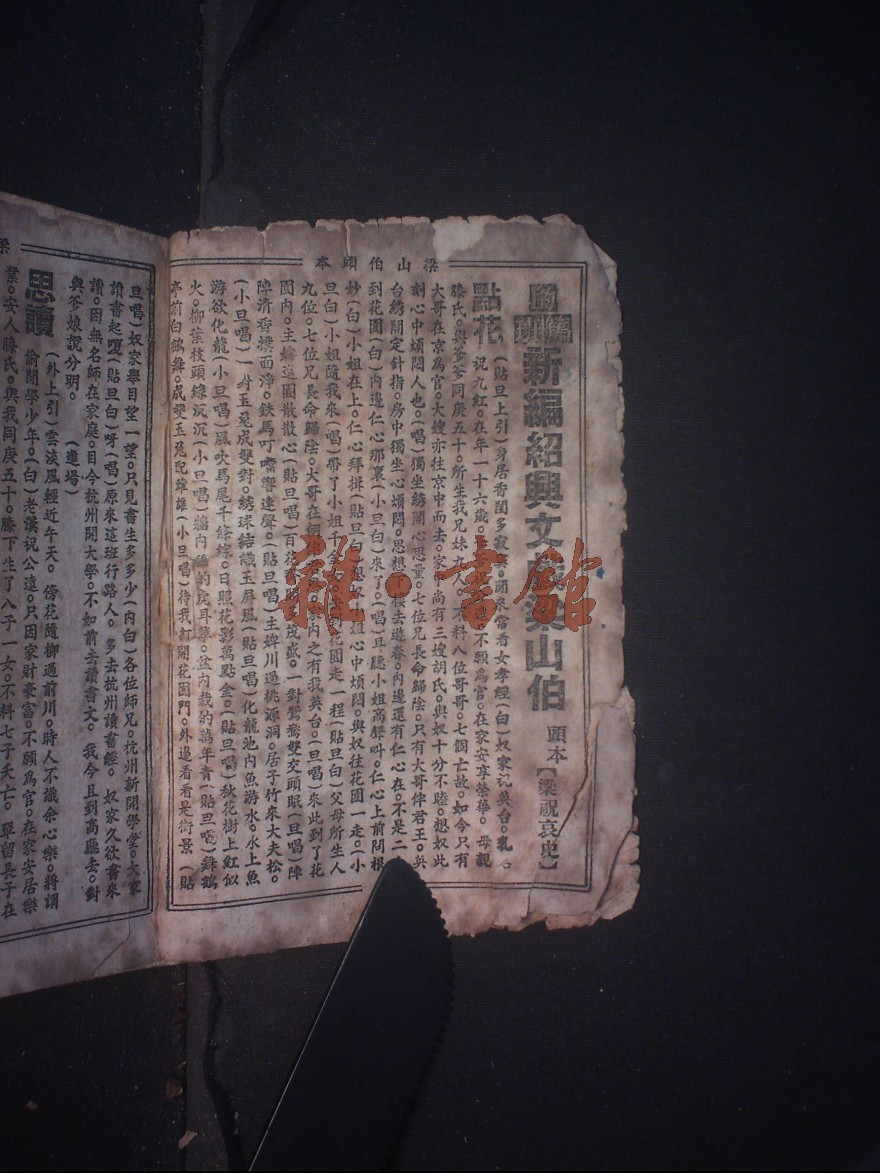 梁山伯頭本
新編紹興文戲梁山伯 頭本【梁祝哀史】
點花 (貼旦上引)身居香閨多寂寞。閒來常看女孝經(白)奴家祝英台。乳名
祝九紅。在年一十六歲。不願為官。在家安享榮華。母親
滕氏。與爹爹同庚五十。所生我兄妹九人。不料八位哥哥。七個亡故。如今只有
大哥在京為官。大嫂亦往京中而去。家中尚有三嫂胡氏。與奴十分不睦。想奴此
刻心中煩悶人也。(唱)獨坐綉閣心思量。七位兄長命歸陰。只有大哥伴君王。英
台綉閣定針指。房中獨坐心煩悶。思想下樓去遊春。內邊還有仁心在。不是二
到花園(白)內邊仁心那裏(小旦白)來了。(唱)耳聽小姐高聲叫。仁心上前問根
妙(白)小姐在上。仁心拜揖(貼旦白)小姐心中煩悶。與奴往花園一走。(小
旦白)小姐隨我來(唱)帶了小姐千金花園走一程(貼旦白)父母所生人
九位。七位兄長命歸陰。大哥在朝家內之有我英台。(旦唱)來此到了花
園內。主婢進園散散心(貼旦唱)百花茂盛。一對鴛鴦雙交頭眠(旦唱)陣
陣清香撲面淨。鉄馬叮噹響連聲。(貼旦唱)主婢川過桃源洞。居子竹來大夫松。
(小旦唱)一對玉兔成雙對。綉球結識玉屏風(貼旦唱)化龍池內魚游水。水上魚
游欲化龍(小旦唱)風吹馬尾千條線。日照花影萬點金。(貼旦唱)秋花樹上紅似
火。柳葉枝頭綠沉沉(小旦唱)牆內的虎耳草。盆內栽的萬年青(貼旦唱)
亭前白鶴舞。成雙玉兔配雌雄(小旦唱)待我打開花園門。外邊看看是街景 (貼
旦唱)奴家舉目望一望。只見書生多多少(內白)各位師兄。杭州新開學堂。大家
讀書起嗄(貼旦白)呀(唱)原來這班行路人。多去杭州讀書經。奴家久欲書來
讀。因無名師在家庭。目今杭州開大學。不如前去讀書文。我今且到高廳去。對
與爹娘說分明。 (進場)
思讀 (外上引)雲淡風輕近午天。傍花隨柳過前川。時人不識余心樂。將謂
偷閒學少年。(白)老漢祝公遠。只因家財豪富。不願為官。在家安居樂
業。安人滕氏。與我同庚五十。膝下生了八子一女。不料七子夭亡。單留長子在
梁
雜·書館